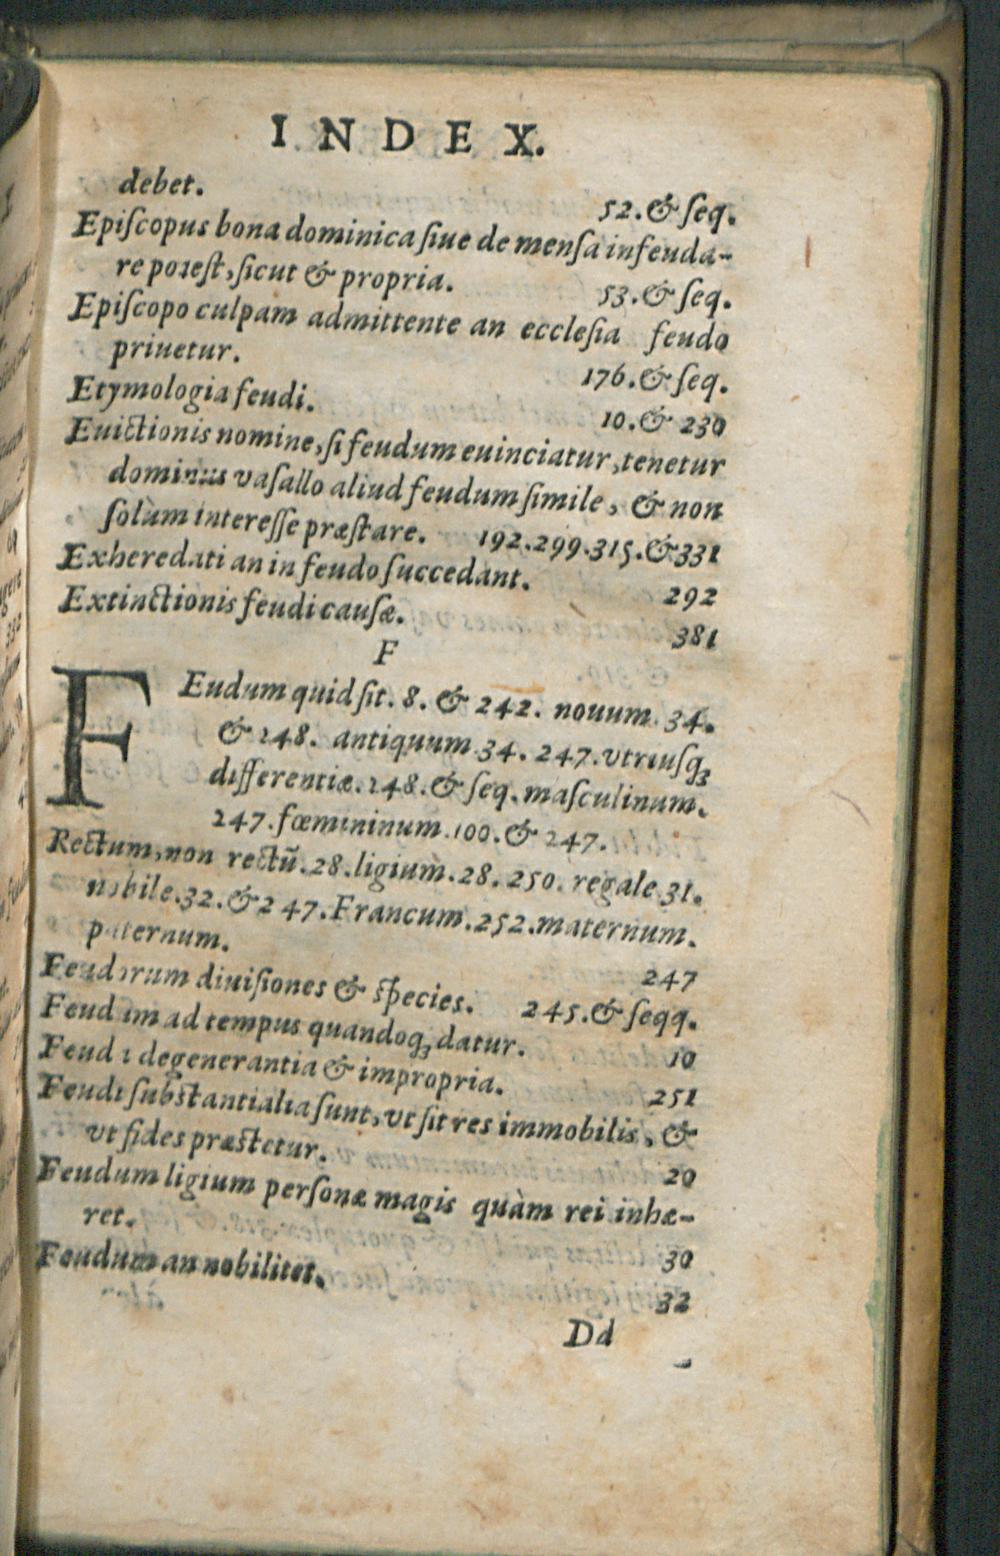 INDEX.
debet. 52. & ſeq.
Epiſcopus bona dominica ſiue de menſa infeuda-
re poteſt, ſicut & propria. 53. & ſeq.
Epiſcopo culpam admittente an eccleſia feudo
priuetur. 176. & ſeq.
Etymologia feudi. 10. & 230
Euictionis nomine, ſi feudum euinciatur, tenetur
dominus vaſallo aliud feudum ſimile, & non
ſolùm intereſſe præſtare. 192. 299. 315. & 331
Exheredati an in feudo ſuccedant. 292
Extinctionis feudi cauſæ. 381
F
FEudum quid ſit. 8. & 242. nouum. 34.
& 248. antiquum. 34. 247. vtriuſq;
differentiæ. 248. & ſeq. maſculinum.
247. fœmininum. 100. & 247.
Rectum, non rectũ. 28. ligium. 28. 250. regale. 31.
nobile. 32. & 247. Francum. 252. maternum.
paternum. 247
Feudorum diuiſiones & ſpecies. 245. & ſeqq.
Feudum ad tempus quandoq; datur. 10
Feudi degenerantia & impropria. 251
Feudi ſubſtantialia ſunt, vt ſit res immobilis, &
vt fides præſtetur. 20
Feudum ligium perſonæ magis quàm rei inhæ-
ret. 30
Feudum an nobilitet. 32
Dd